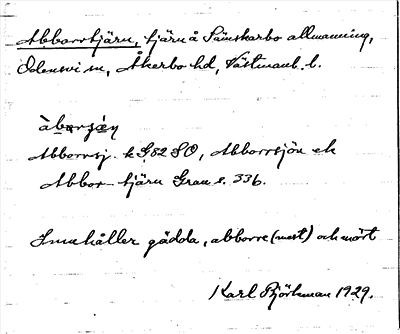 Abborrtjärn, tjärn å Sämskarbo allmänning,
Odensvi sn, Åkerbo hd, Västmanl. l.
àbɷrʂæ̀n
Abborrsj. k G82 SO, Abborrsjön ek
Abbor- tjärn Grau s. 336.
Innehåller gädda, abborre (mest) och mört
Karl Björkman 1929.